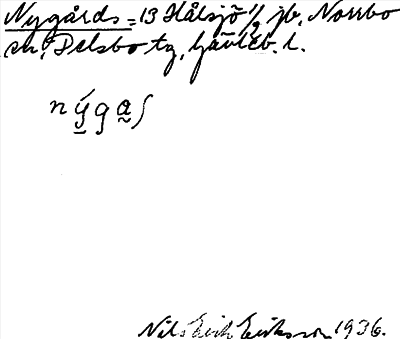 Nygårds = 13 Hålsjö 1/2 jb, Norrbo
sn, Delsbo tg, Gävleb. l.
nýgas
Nils Erik Eriksson 1936.